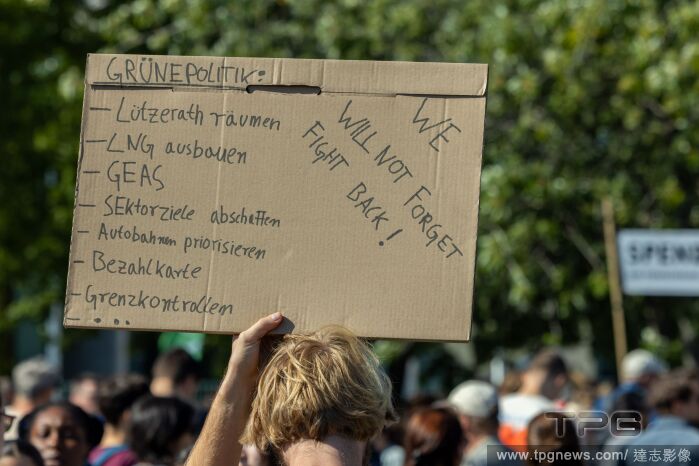 GRÜNEPOLITIK:
– Lützerath räumen
– LNG ausbauen
– GEAS
– SEktorziele abschaffen
– Autobahnen priorisieren
– Bezahlkarte
– Grenzkontrollen
– ...
WE
WILL NOT FORGET
FIGHT BACK!
SPEND
TPG
www.tpgnews.com/達志影像